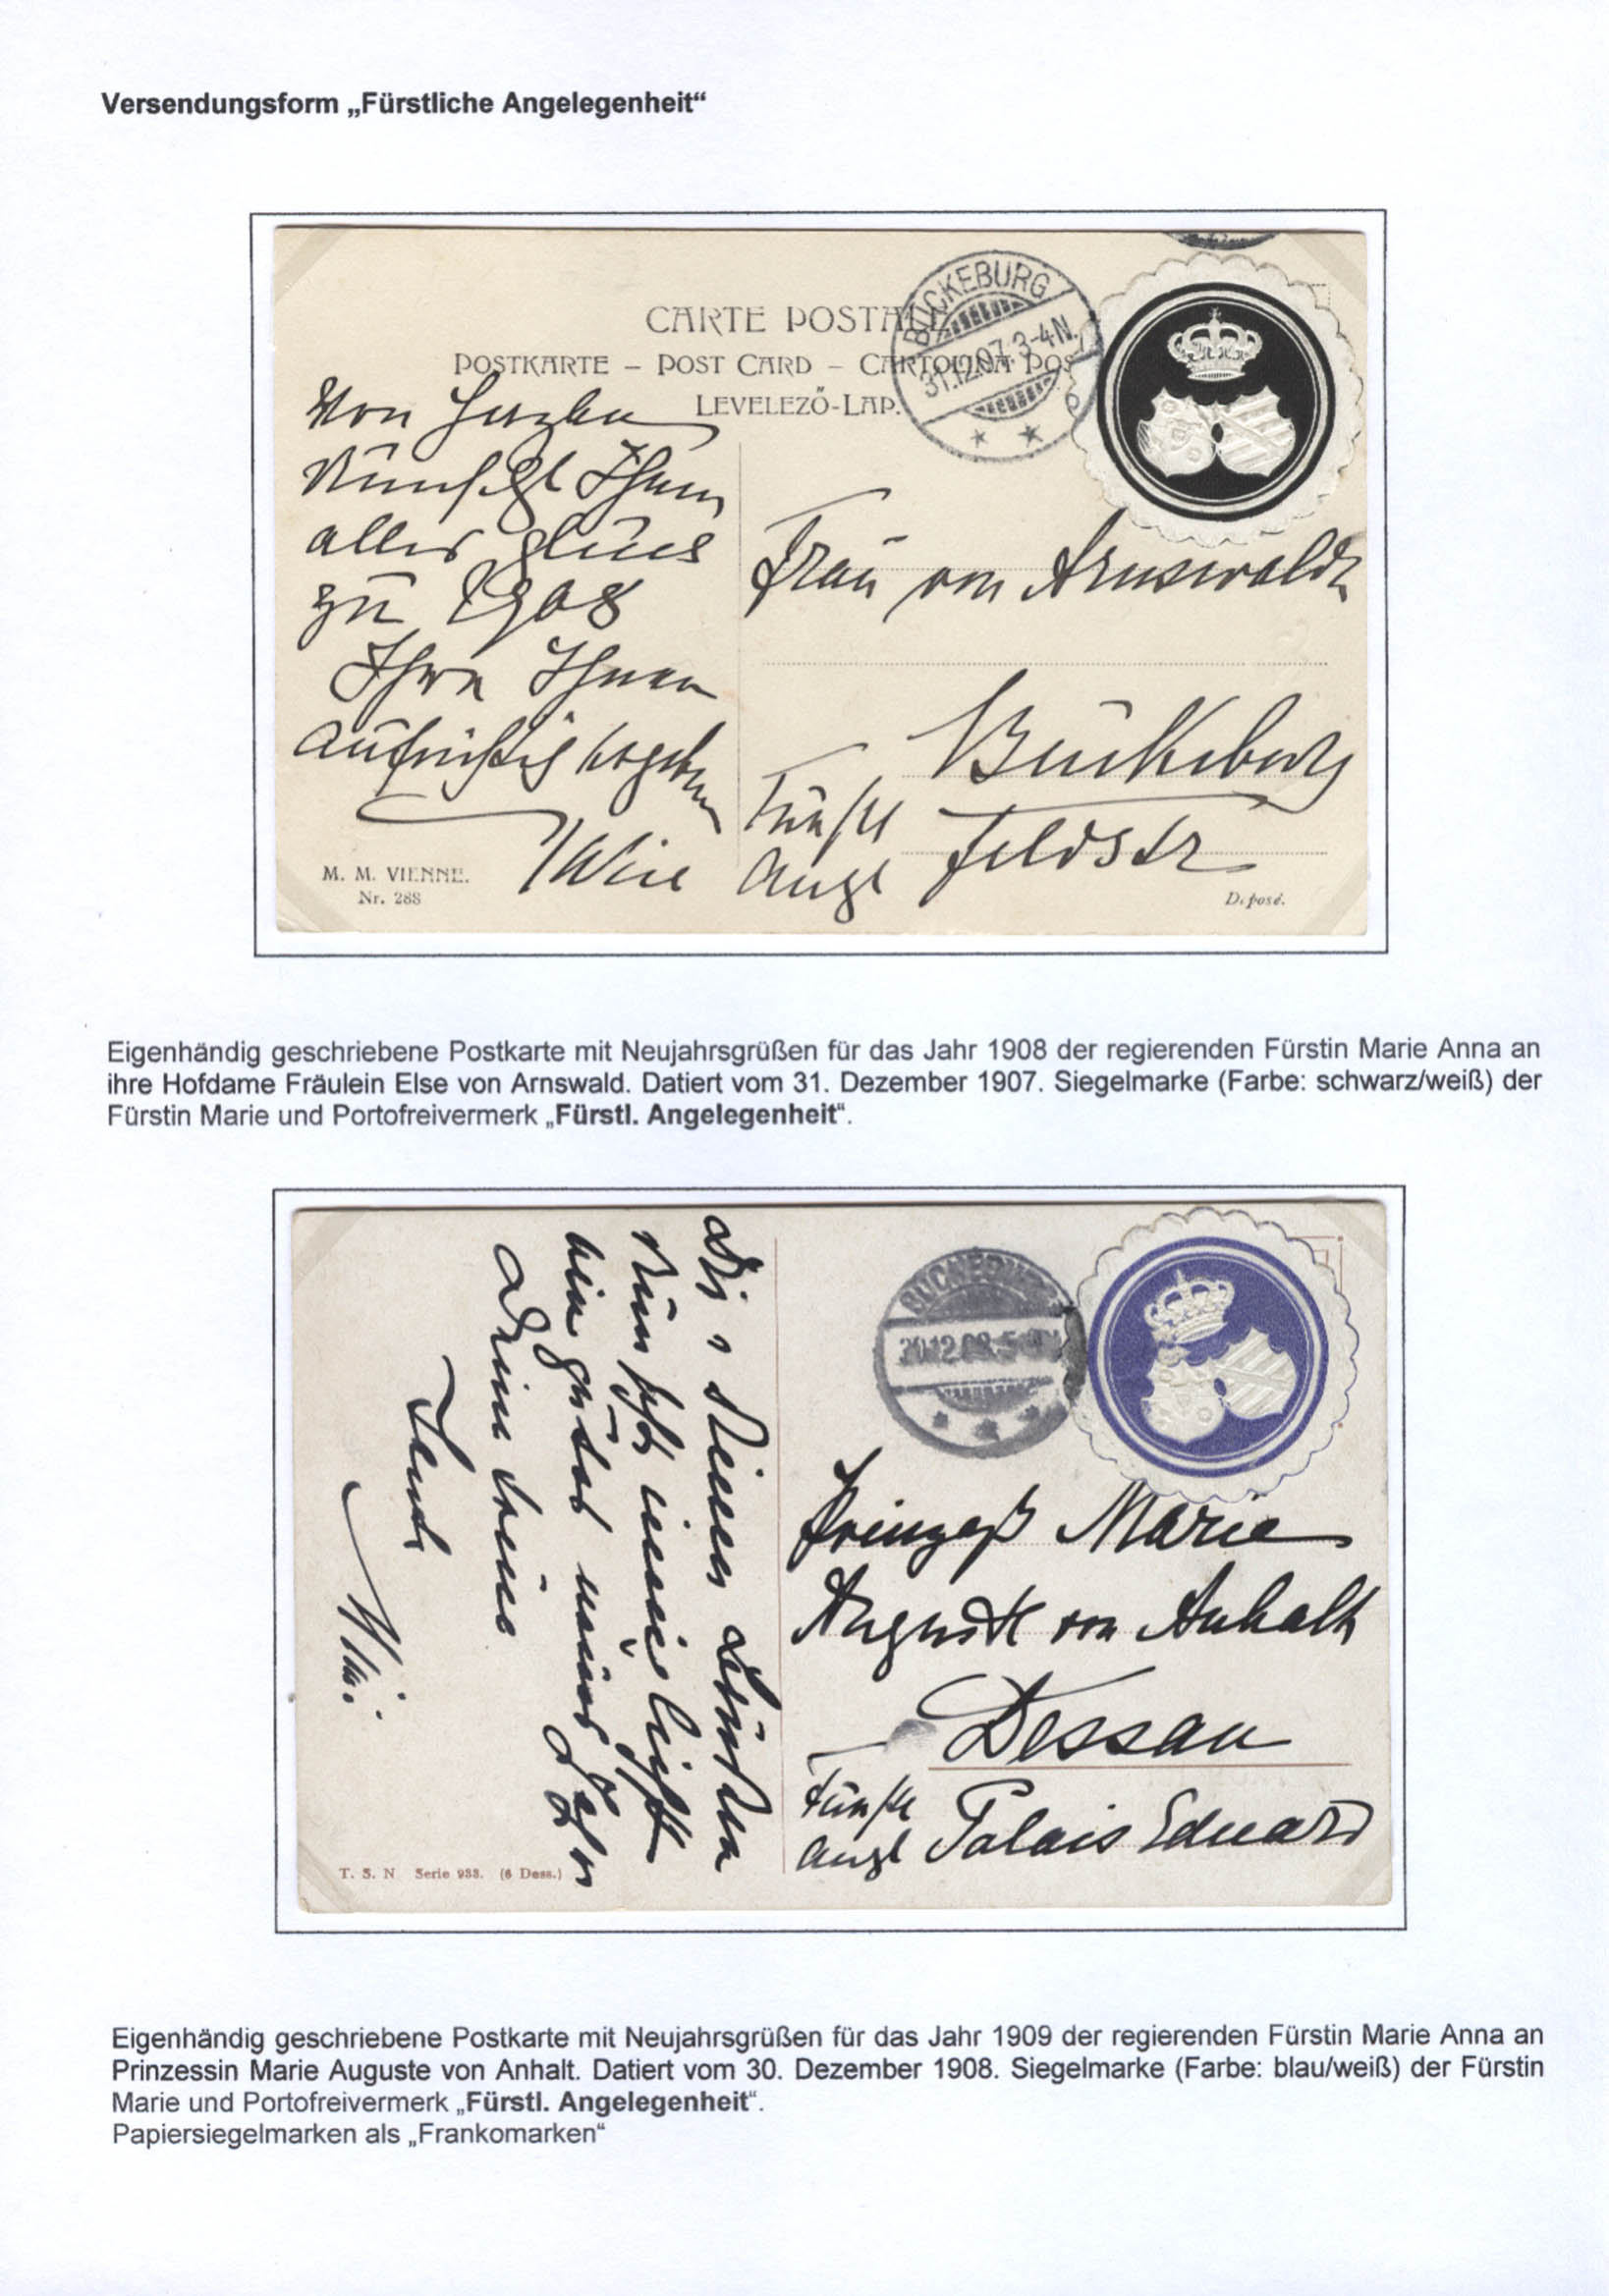 Versendungsform „Fürstliche Angelegenheit“
CARTE POSTALE
POSTKARTE – POST CARD – CARTOLINA POS
LEVELEZŐ-LAP.
BÜCKEBURG
31.12.07.3-4N.
Von Herzen
wünscht Ihnen
alles Glück
zu 1908
Ihre Ihnen
aufrichtig ergebene
Frau von Arnswaldt
Bückeburg
Fürstl
Angl
Feldstr
M. M. VIENNE.
Nr. 288
Déposé.
Eigenhändig geschriebene Postkarte mit Neujahrsgrüßen für das Jahr 1908 der regierenden Fürstin Marie Anna an
ihre Hofdame Fräulein Else von Arnswald. Datiert vom 31. Dezember 1907. Siegelmarke (Farbe: schwarz/weiß) der
Fürstin Marie und Portofreivermerk „Fürstl. Angelegenheit“.
BÜCKEBURG
wünscht innigst
ein gutes neues Jahr
Deine treue
Prinzeß Marie
Auguste von Anhalt
Dessau
Fürstl
Angl
Palais Eduard
T. S. N Serie 933. (6 Dess.)
Eigenhändig geschriebene Postkarte mit Neujahrsgrüßen für das Jahr 1909 der regierenden Fürstin Marie Anna an
Prinzessin Marie Auguste von Anhalt. Datiert vom 30. Dezember 1908. Siegelmarke (Farbe: blau/weiß) der Fürstin
Marie und Portofreivermerk „Fürstl. Angelegenheit“.
Papiersiegelmarken als „Frankomarken“